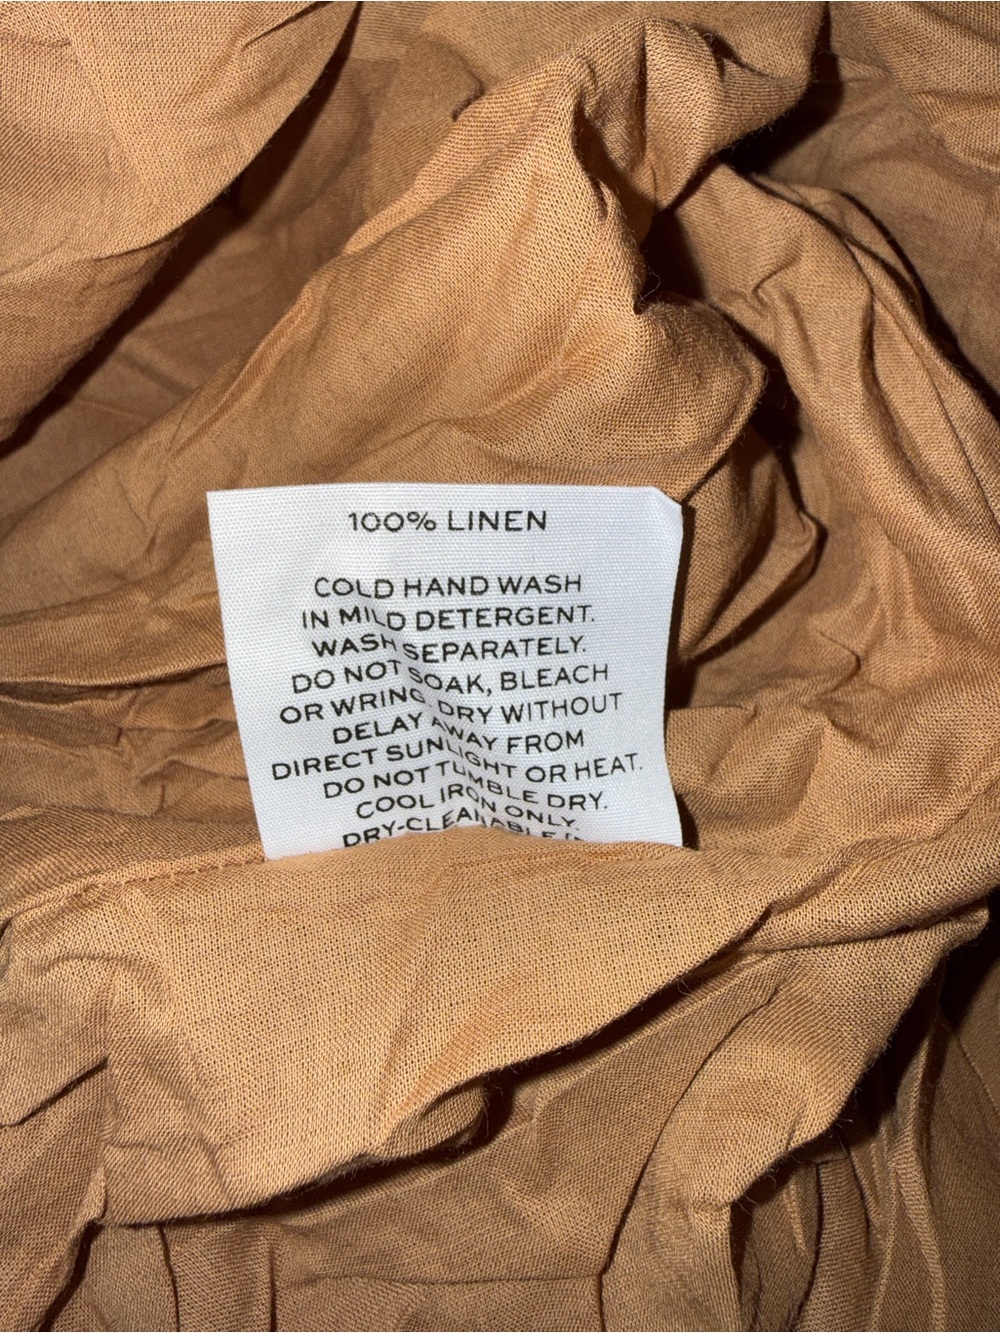 100% LINEN
COLD HAND WASH
IN MILD DETERGENT.
WASH SEPARATELY.
DO NOT SOAK, BLEACH
OR WRING, DRY WITHOUT
DELAY AWAY FROM
DIRECT SUNLIGHT OR HEAT.
DO NOT TUMBLE DRY.
COOL IRON ONLY.
DRY-CLEANABLE